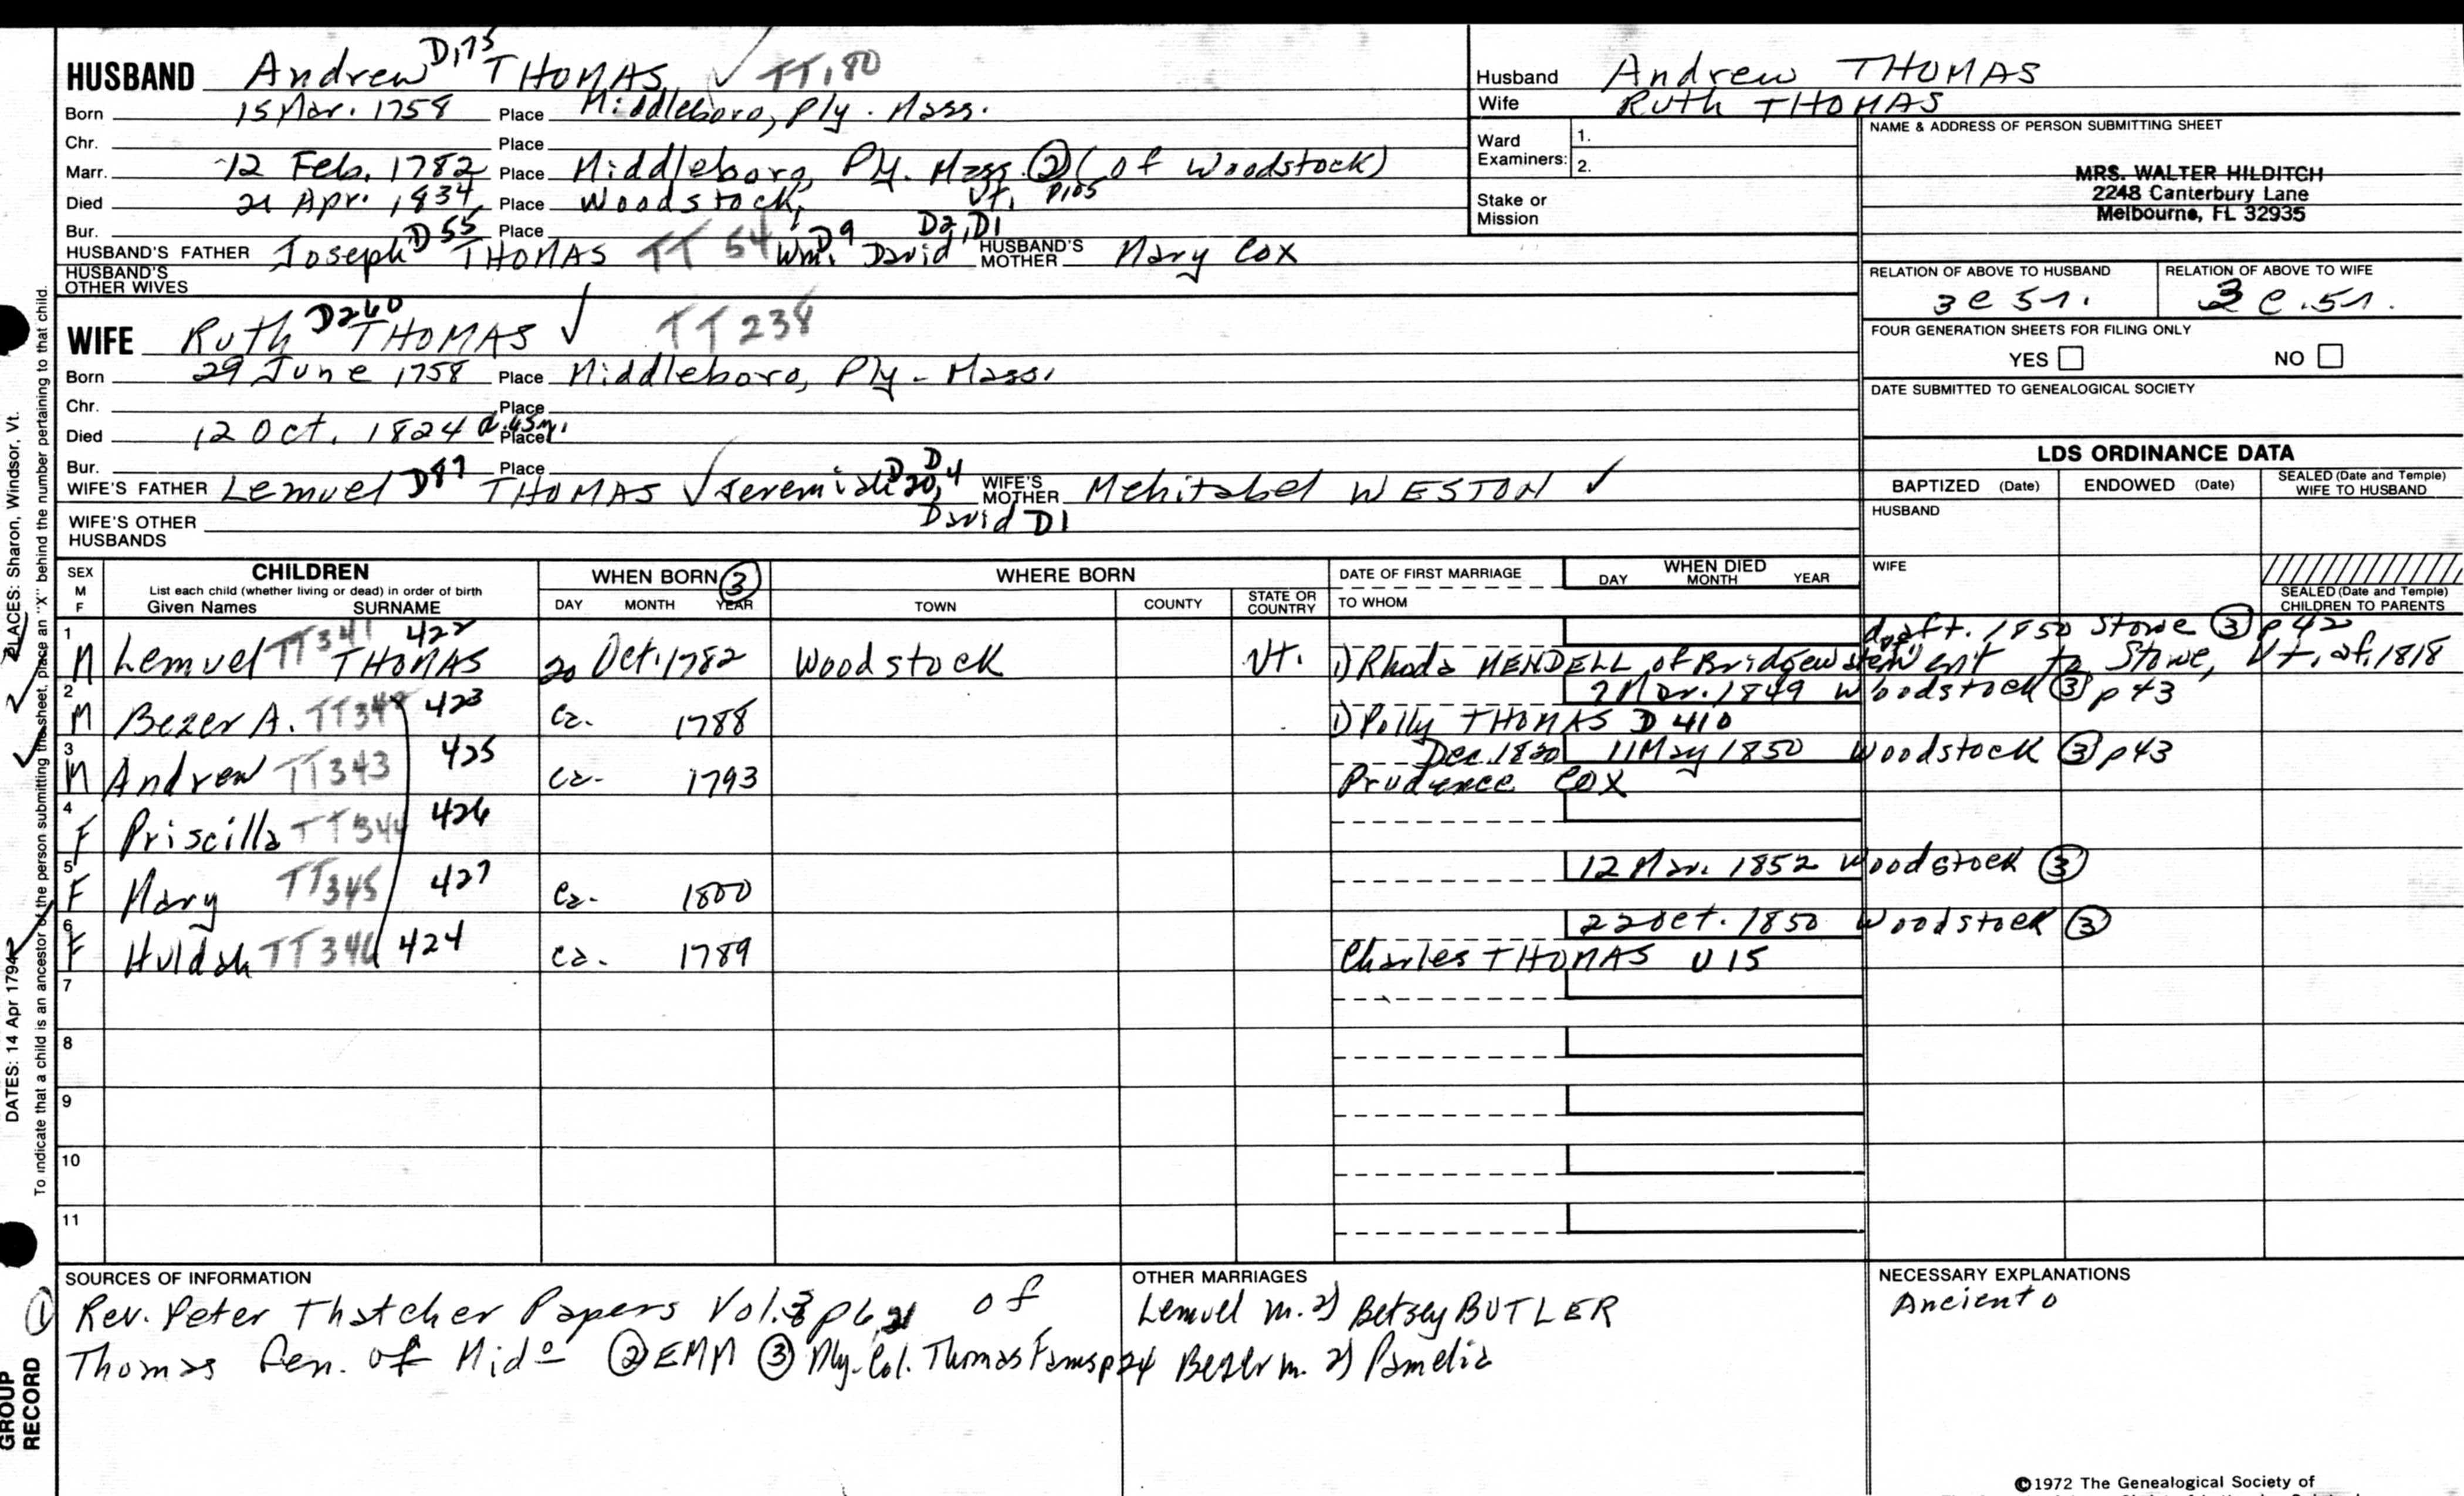 HUSBAND Andrew D175 THOMAS ✓ TT180
Born 15 Mar. 1758 Place Middleboro, Ply. Mass.
Chr. Place
Marr. 12 Feb. 1782 Place Middleboro, Ply. Mass ② (of Woodstock)
Died 21 Apr. 1834 Place Woodstock, Vt. p105
Bur. Place
HUSBAND'S FATHER Joseph D55 THOMAS TT 54 Wm. D9 David D2, D1 HUSBAND'S MOTHER Mary Cox
HUSBAND'S OTHER WIVES
WIFE Ruth D260 THOMAS ✓ TT 238
Born 29 June 1758 Place Middleboro, Ply - Mass.
Chr. Place
Died 12 Oct. 1824 Place
Bur. Place
WIFE'S FATHER Lemuel D87 THOMAS ✓ Jeremiah D20, D4 WIFE'S MOTHER Mehitabel WESTON ✓
David D1
WIFE'S OTHER HUSBANDS
Husband Andrew THOMAS
Wife Ruth THOMAS
Ward Examiners: 1.
2.
Stake or Mission
NAME & ADDRESS OF PERSON SUBMITTING SHEET
MRS. WALTER HILDITCH
2248 Canterbury Lane
Melbourne, FL 32935
RELATION OF ABOVE TO HUSBAND RELATION OF ABOVE TO WIFE
3 c 5r. 3 c. 5r.
FOUR GENERATION SHEETS FOR FILING ONLY
YES NO
DATE SUBMITTED TO GENEALOGICAL SOCIETY
LDS ORDINANCE DATA
BAPTIZED (Date) ENDOWED (Date) SEALED (Date and Temple) WIFE TO HUSBAND
HUSBAND
WIFE
SEALED (Date and Temple) CHILDREN TO PARENTS
SEX M F
CHILDREN
List each child (whether living or dead) in order of birth
Given Names SURNAME
WHEN BORN ③
DAY MONTH YEAR
WHERE BORN
TOWN COUNTY STATE OR COUNTRY
DATE OF FIRST MARRIAGE
TO WHOM
WHEN DIED
DAY MONTH YEAR
d. aft. 1850 Stowe ③ p42
1 M Lemuel TT341 422 THOMAS 20 Oct. 1782 Woodstock Vt. 1) Rhoda MENDELL of Bridgewater Went to Stowe, Vt. af. 1818
2 Mar. 1849 Woodstock ③ p43
2 M Bezer A. TT342 423 Ca. 1788 1) Polly THOMAS D 410
Dec. 1820 11 May 1850 Woodstock ③ p43
3 M Andrew TT343 425 Ca- 1793 Prudence COX
4 F Priscilla TT344 426
12 Mar. 1852 Woodstock ③
5 F Mary TT345 427 Ca- 1800
22 Oct. 1850 Woodstock ③
6 F Huldah TT346 424 Ca- 1789 Charles THOMAS U 15
7
8
9
10
11
SOURCES OF INFORMATION
① Rev. Peter Thatcher Papers Vol. 3 p6, 21 of
Thomas Gen. of Mido ② EMM ③ Ply. Col. Thomas Fams p24
OTHER MARRIAGES
Lemuel m. 2) Betsey BUTLER
Bezer m. 2) Pamelia
NECESSARY EXPLANATIONS
Ancient o
©1972 The Genealogical Society of
PLACES: Sharon, Windsor, Vt.
DATES: 14 Apr 1794
To indicate that a child is an ancestor of the person submitting the sheet, place an "X" behind the number pertaining to that child.
GROUP RECORD